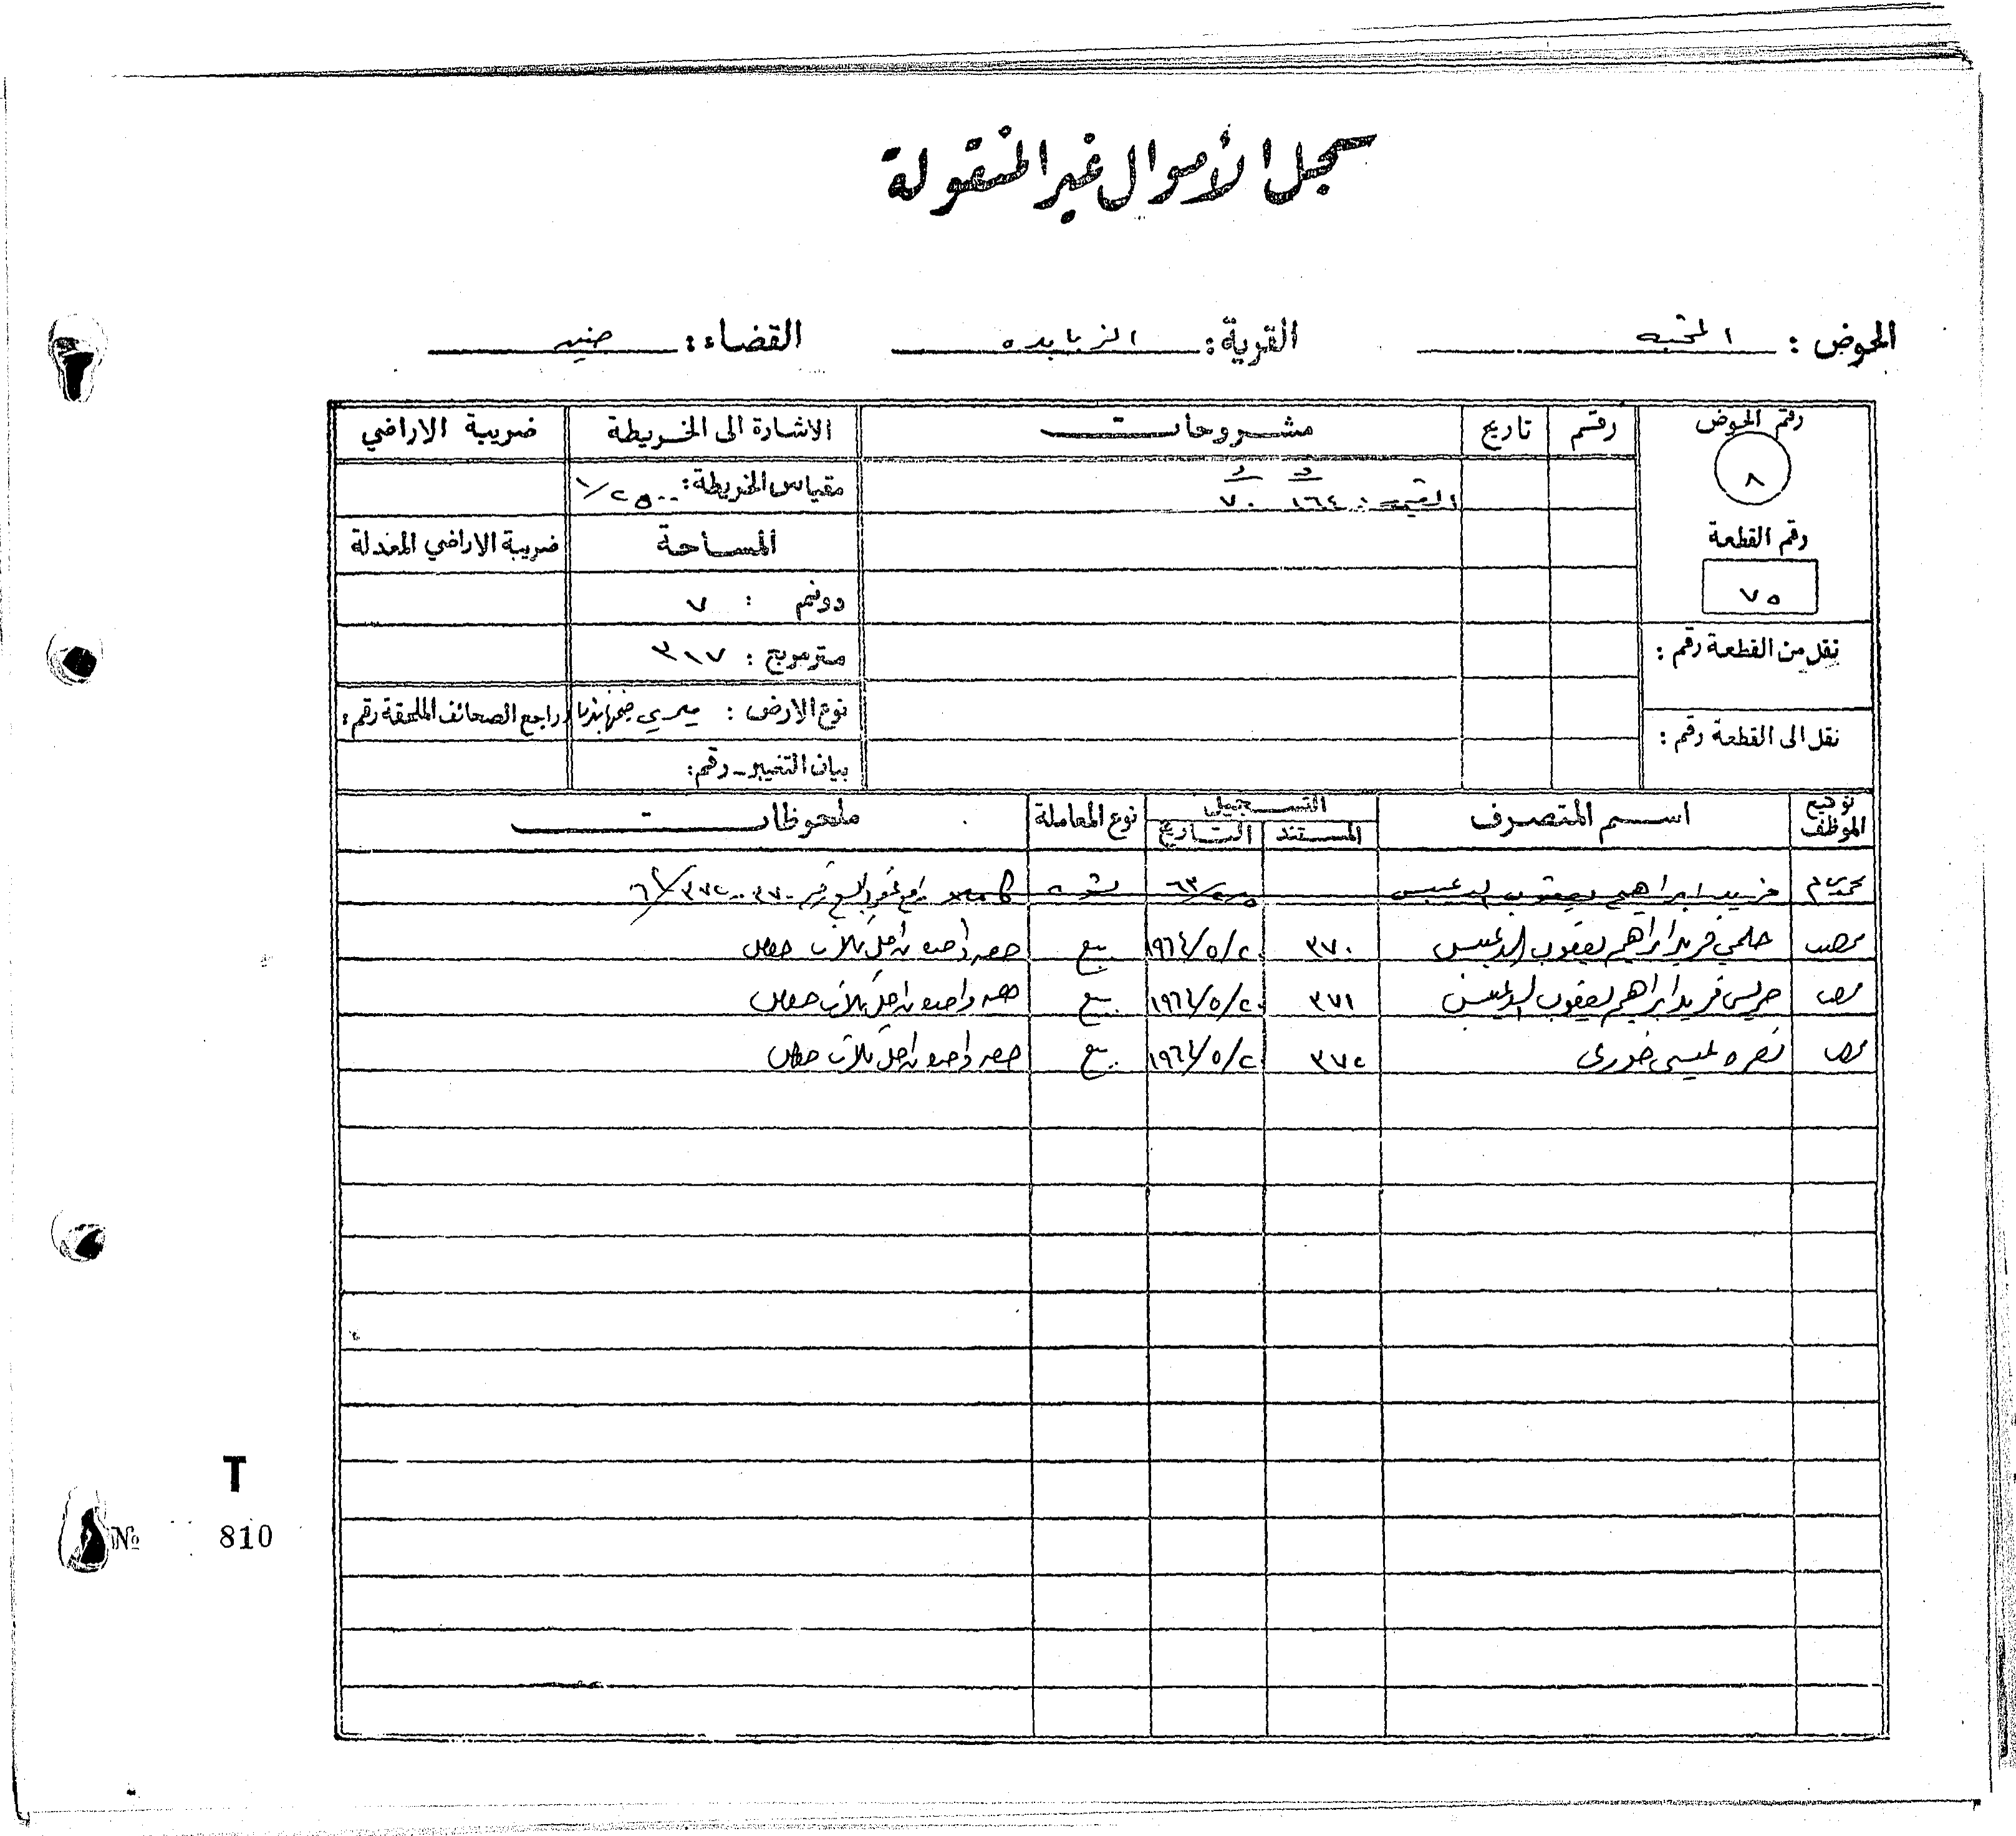 سجل الأموال غير المنقولة
الحوض : المحتبه القرية : الزبابده القضاء : جنين
رقم الحوض رقم تاريخ مشروحات الاشارة الى الخريطة ضريبة الاراضي
٨
القيمة : ١٦٤ ٧٠ مقياس الخريطة : ١/٢٥٠٠
رقم القطعة المساحة ضريبة الاراضي المعدلة
٧٥ دونم : ٧
نقل من القطعة رقم : متر مربع : ٣١٧
نوع الارض : ميري راجع الصحائف الملحقة رقم :
نقل الى القطعة رقم :
بيان التغيير - رقم :
توقيع الموظف اسم المتصرف التسجيل نوع المعاملة ملحوظات
المستند التاريخ
فريد ابراهيم يعقوب الدعيبس تسوية كاملا راجع عقود البيع رقم ٣٧٠-٣٧٢/٦٤
حلمي فريد ابراهيم يعقوب الدعيبس ٣٧٠ ١٩٦٤/٥/٢٠ بيع حصه واحده من اصل ثلاث حصص
جريس فريد ابراهيم يعقوب الدعيبس ٣٧١ ١٩٦٤/٥/٢٠ بيع حصه واحده من اصل ثلاث حصص
نصره عيسى خوري ٣٧٢ ١٩٦٤/٥/٢٠ بيع حصه واحده من اصل ثلاث حصص
T
№ 810